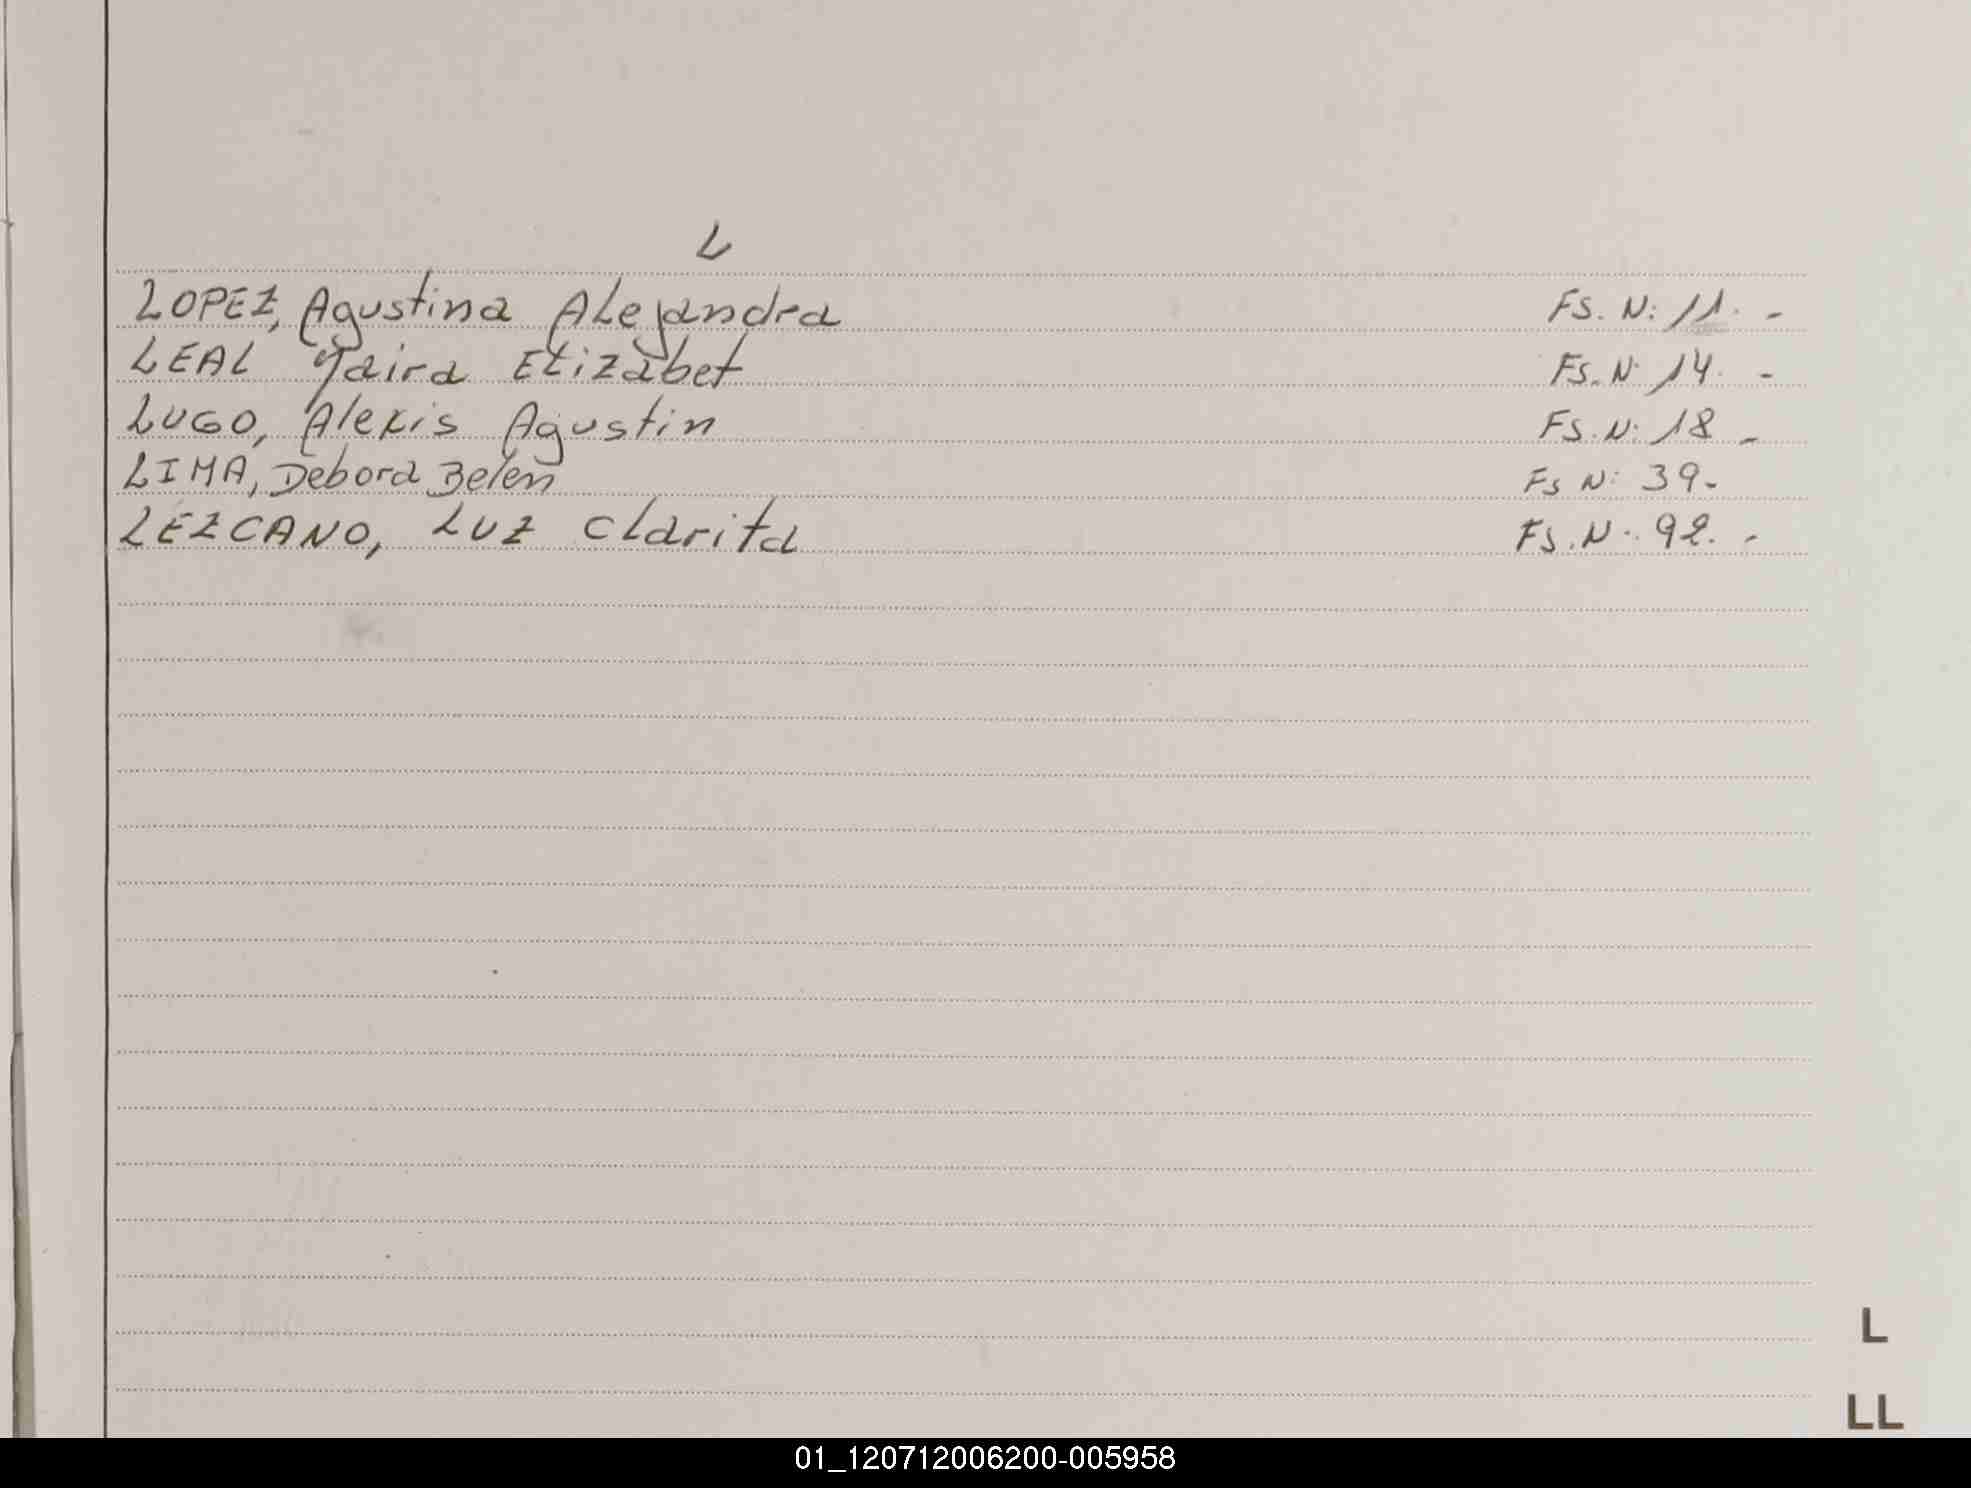 L
LOPEZ, Agustina Alejandra FS. N: 11. -
LEAL Yaira Elizabet FS. N: 14. -
LUGO, Alexis Agustin FS. N: 18 -
LIMA, Debora Belen FS N: 39.-
LEZCANO, LUZ Clarita FS. N: 92. -
L
LL
01_120712006200-005958